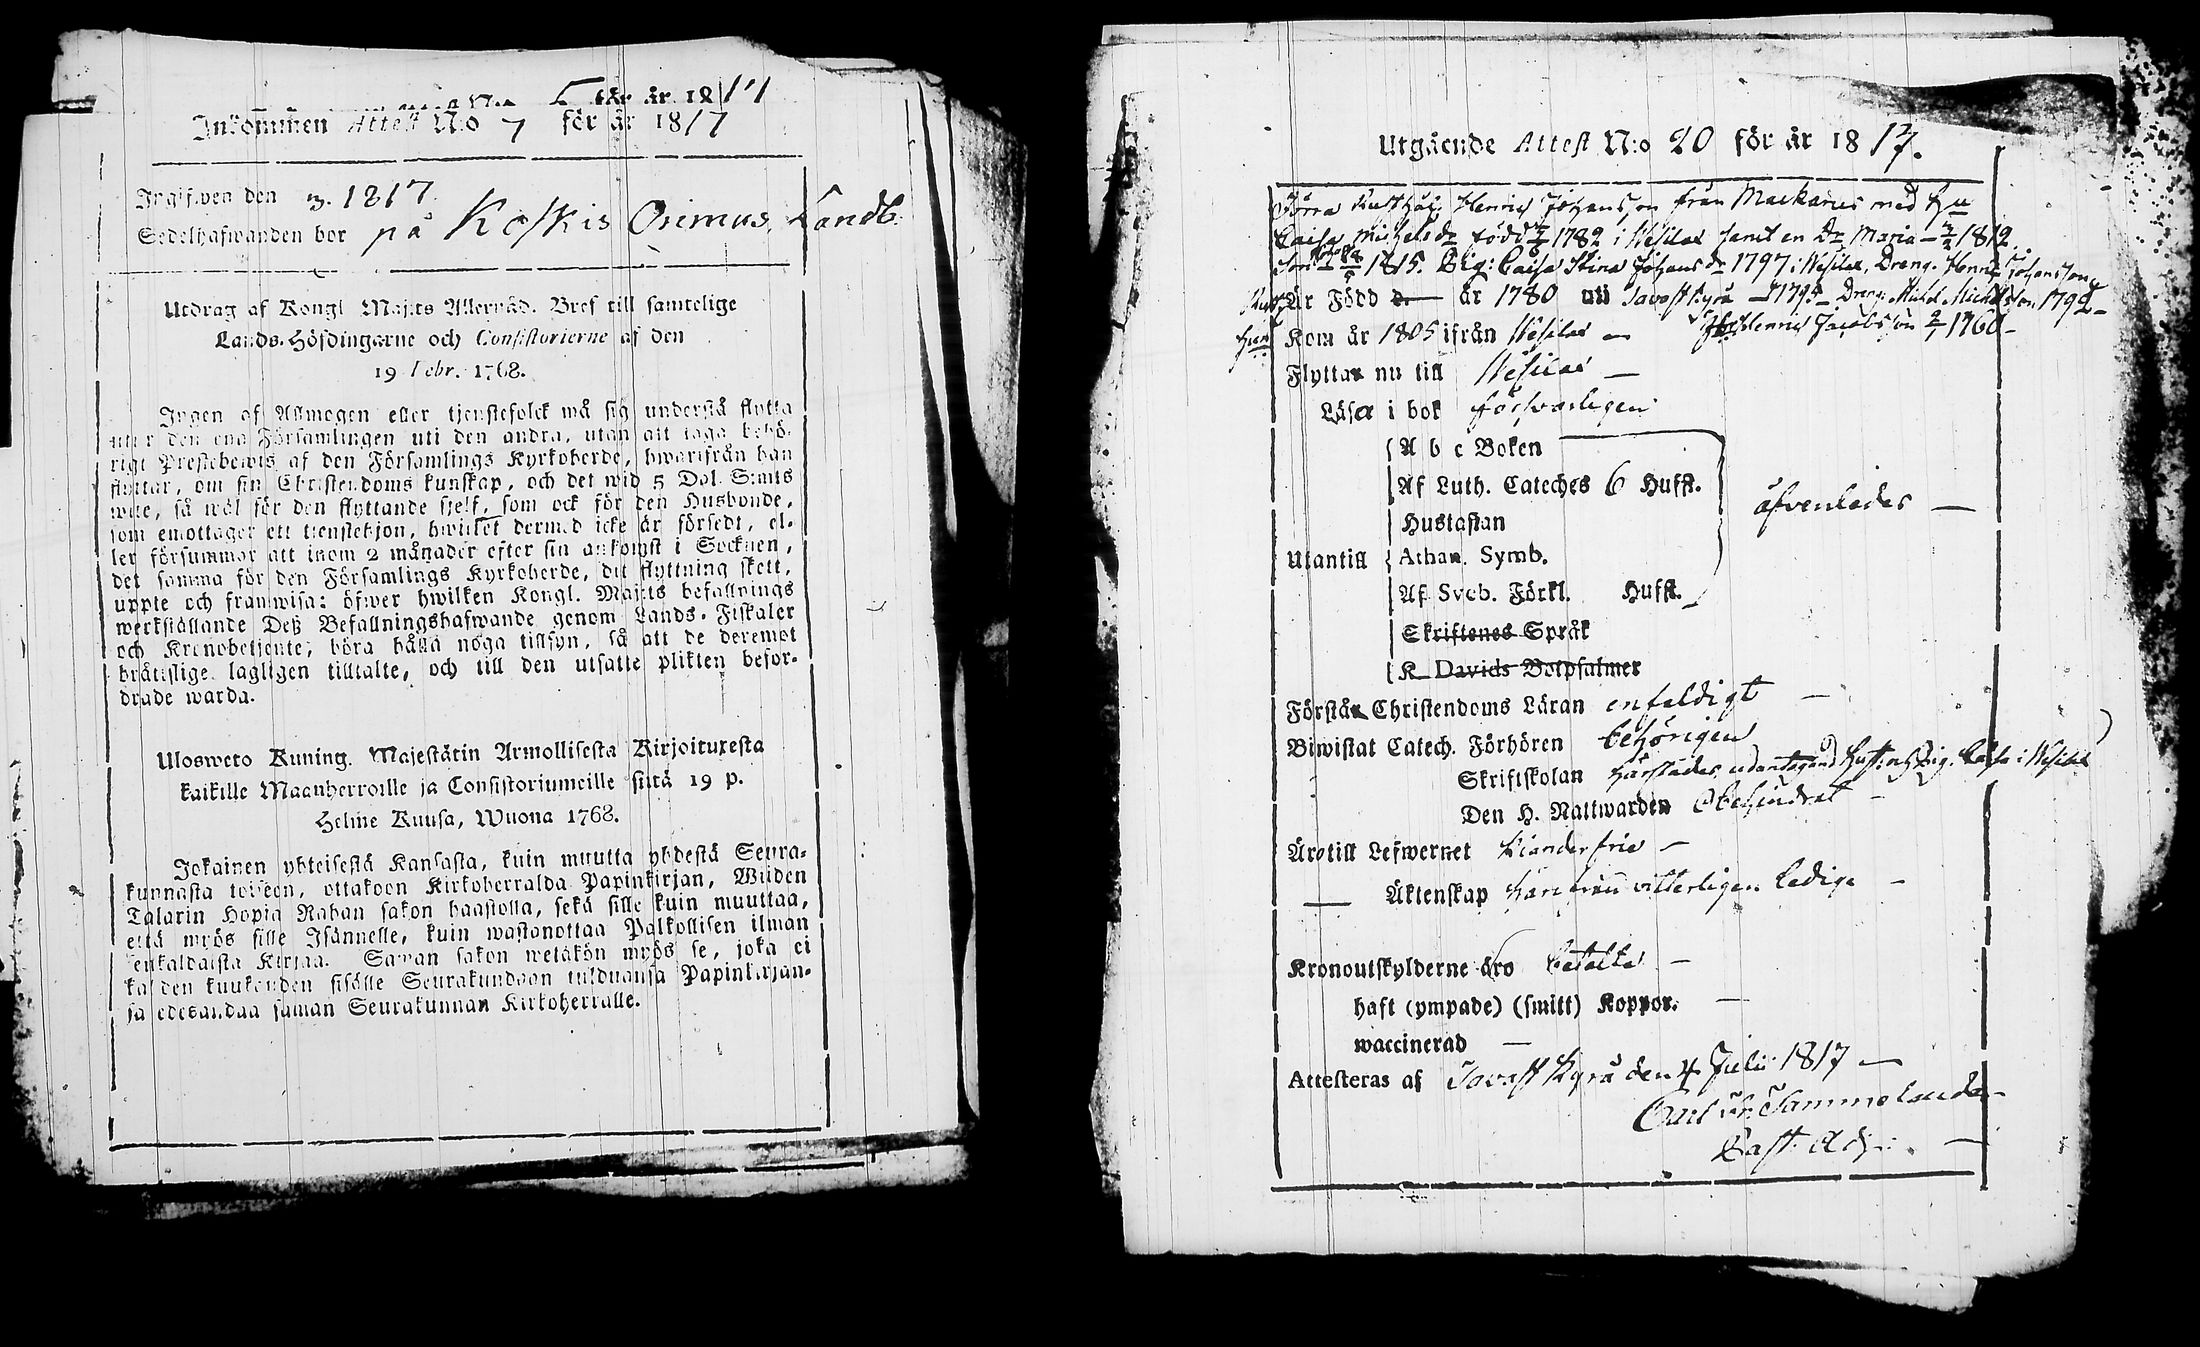 för år 1817
Inkommen Attest N:o 7 för år 1817
Ingifven den 1817.
Sedelhafwanden bor på Koskis Orimus Landb.
Utdrag af Kongl Maj:ts Allernåd. Bref till samtelige
Lands-Höfdingarne och Consistorierne af den
19 Febr. 1768.
Ingen af Allmogen eller tjenstefolck må sig understå flytta
utur den ena Församlingen uti den andra, utan att taga behö-
rigt Prestebewis af den Församlings Kyrkoherde, hwarifrån han
flyttar, om sin Christendoms kunskap, och det wid 5 Dal. S:mts
wite, så wäl för den flyttande sjelf, som ock för den Husbonde,
som emottager ett tjenstehjon, hwilket dermed icke är försedt, el-
ler försummar att inom 2 månader efter sin ankomst i Socknen,
det samma för den Församlings Kyrkoherde, dit flyttning skett,
uppte och framwisa: öfwer hwilken Kongl. Maj:ts befallnings
werkställande Deß Befallningshafwande genom Lands-Fiskaler
och Kronobetjente, böra hålla noga tillsyn, så att de deremot
bråttslige lagligen tilltalte, och till den utsatte plikten befor-
drade warda.
Ulosweto Kuning. Majestätin Armollisesta Kirjoituxesta
kaikille Maanherroille ja Consistoriumeille siitä 19 p.
Helme Kuusa, Wuona 1768.
Jokainen yhteisestä Kansasta, kuin muutta yhdestä Seura-
kunnasta toiseen, ottakoon Kirkoherralda Papinkirjan, Wiiden
Talarin Hopia Rahan sakon haastolla, sekä sille kuin muuttaa,
että myös sille Isännelle, kuin wastanottaa Palkollisen ilman
senkaldaista Kirjaa. Saman sakon wetäkön myös se, joka ei
kahden kuukauden sisälle Seurakundaan tulduansa Papinkirjan-
sa edesandaa saman Seurakunnan Kirkoherralle.
Utgående Attest N:o 20 för år 1817.
Förra Rusthåll: Henric Johansson från Mackaries med Hu
Caisa Michelsdr född 1782 i Wesilax samt en Dr Maria 1812
1815. Pig: Caisa Stina Johansdr 1797 i Wesilax, Dreng. Henric Johansson
Rusth Är Född d. — år 1780 uti Tavast Kyrö — 1795 — Dreng Michel Michelsson 1792 —
Hun Kom år 1805 ifrån Wesilax — Henric Jacobsson 1760 —
Flyttar nu till Wesilax —
Läsa i bok försvarligen
A b c Boken
Af Luth. Cateches 6 Hufst.
Hustaflan
äfvenledes —
Utantill Athan. Symb.
Af Sveb. Förkl. Hufst.
Skriftenes Språk
K Davids Botpsalmer
Förstår Christendoms Läran enfaldigt —
Biwistat Catech. Förhören behörigen
Skriftskolan härstädes, undantagand Hust: och Pig. Caisa i Wesilax
Den H. Nattwarden Obehindrat —
Äro till Lefwernet klanderfrie —
— Äktenskap härifrån vitterligen ledige —
Kronoutskylderne äro betalte —
haft (ympade) (smitt) Koppor. —
waccinerad —
Attesteras af Tavast Kyrö den 4 Julii 1817 —
Carl Fr. Tammelander
Past. Adj. —